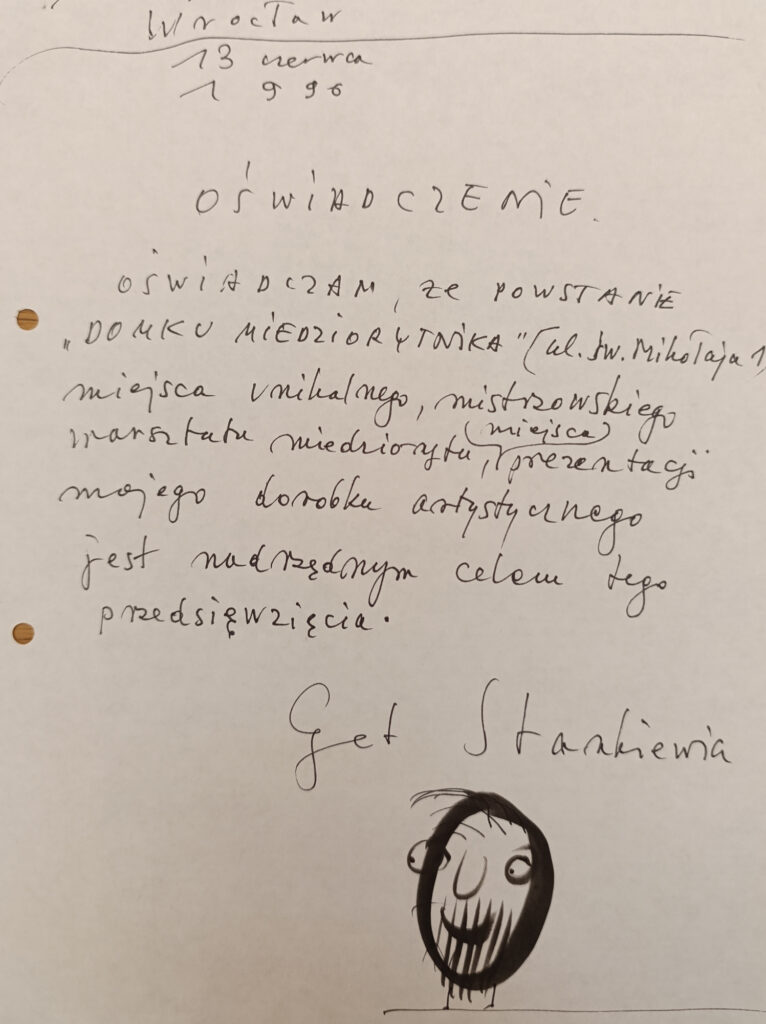 Wrocław
13 czerwca
1996
OŚWIADCZENIE.
OŚWIADCZAM, że POWSTANIE
„DOMKU MIEDZIORYTNIKA" (ul. św. Mikołaja 1)
miejsca unikalnego, mistrzowskiego
warsztatu miedziorytu, (miejsca) prezentacji
mojego dorobku artystycznego
jest nadrzędnym celem tego
przedsięwzięcia.
Get Stankiewicz